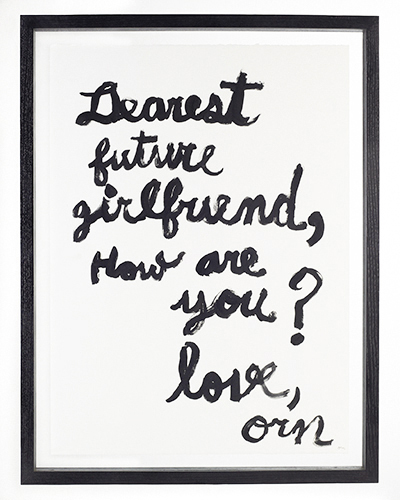 Dearest
future
girlfriend,
How are
you?
love,
orn